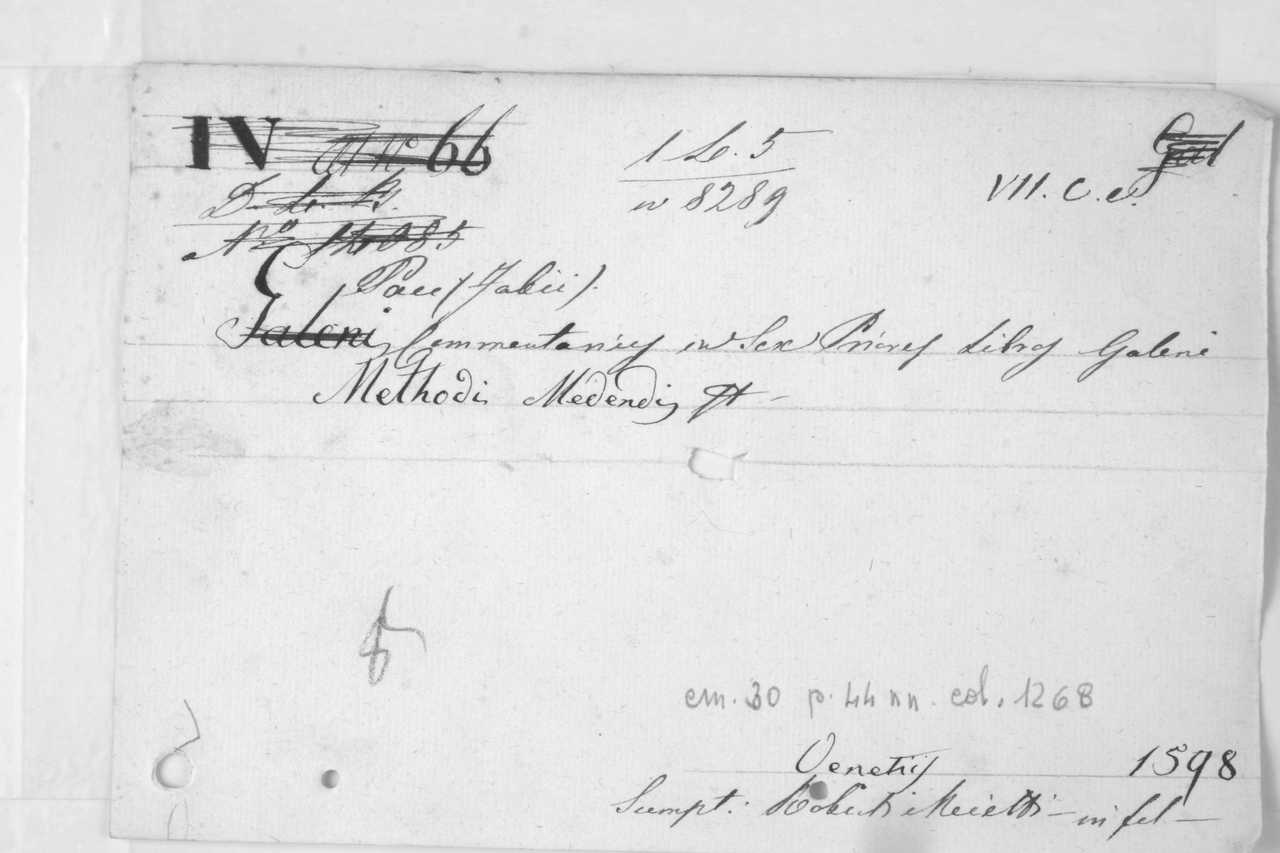 IV 66
1 L. 5
VII. C. e.
n 8289
Pace (Fabii).
Galeni Commentarius in Sex Priores Libros Galeni
Methodi Medendi
cm. 30 p. 44 nn. col. 1268
Venetijs 1598
Sumpt: Roberti Meietti - in fol -